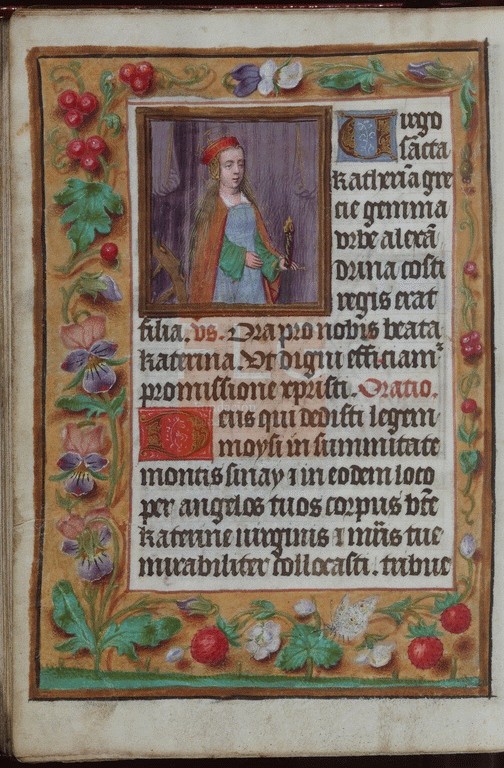 Virgo
sācta
katheria gre
cie gemma
vrbe alexā
drina costi
regis erat
filia. vs. Ora pro nobis beata
katerina. Vt digni efficiam̄
promissione xpristi. Oratio.
Deus qui dedisti legem
moysi in summitate
montis sinay ⁊ in eodem loco
per angelos tuos corpus bt̄e
katerine uirginis ⁊ mr̄is tue
mirabiliter collocasti. tribue